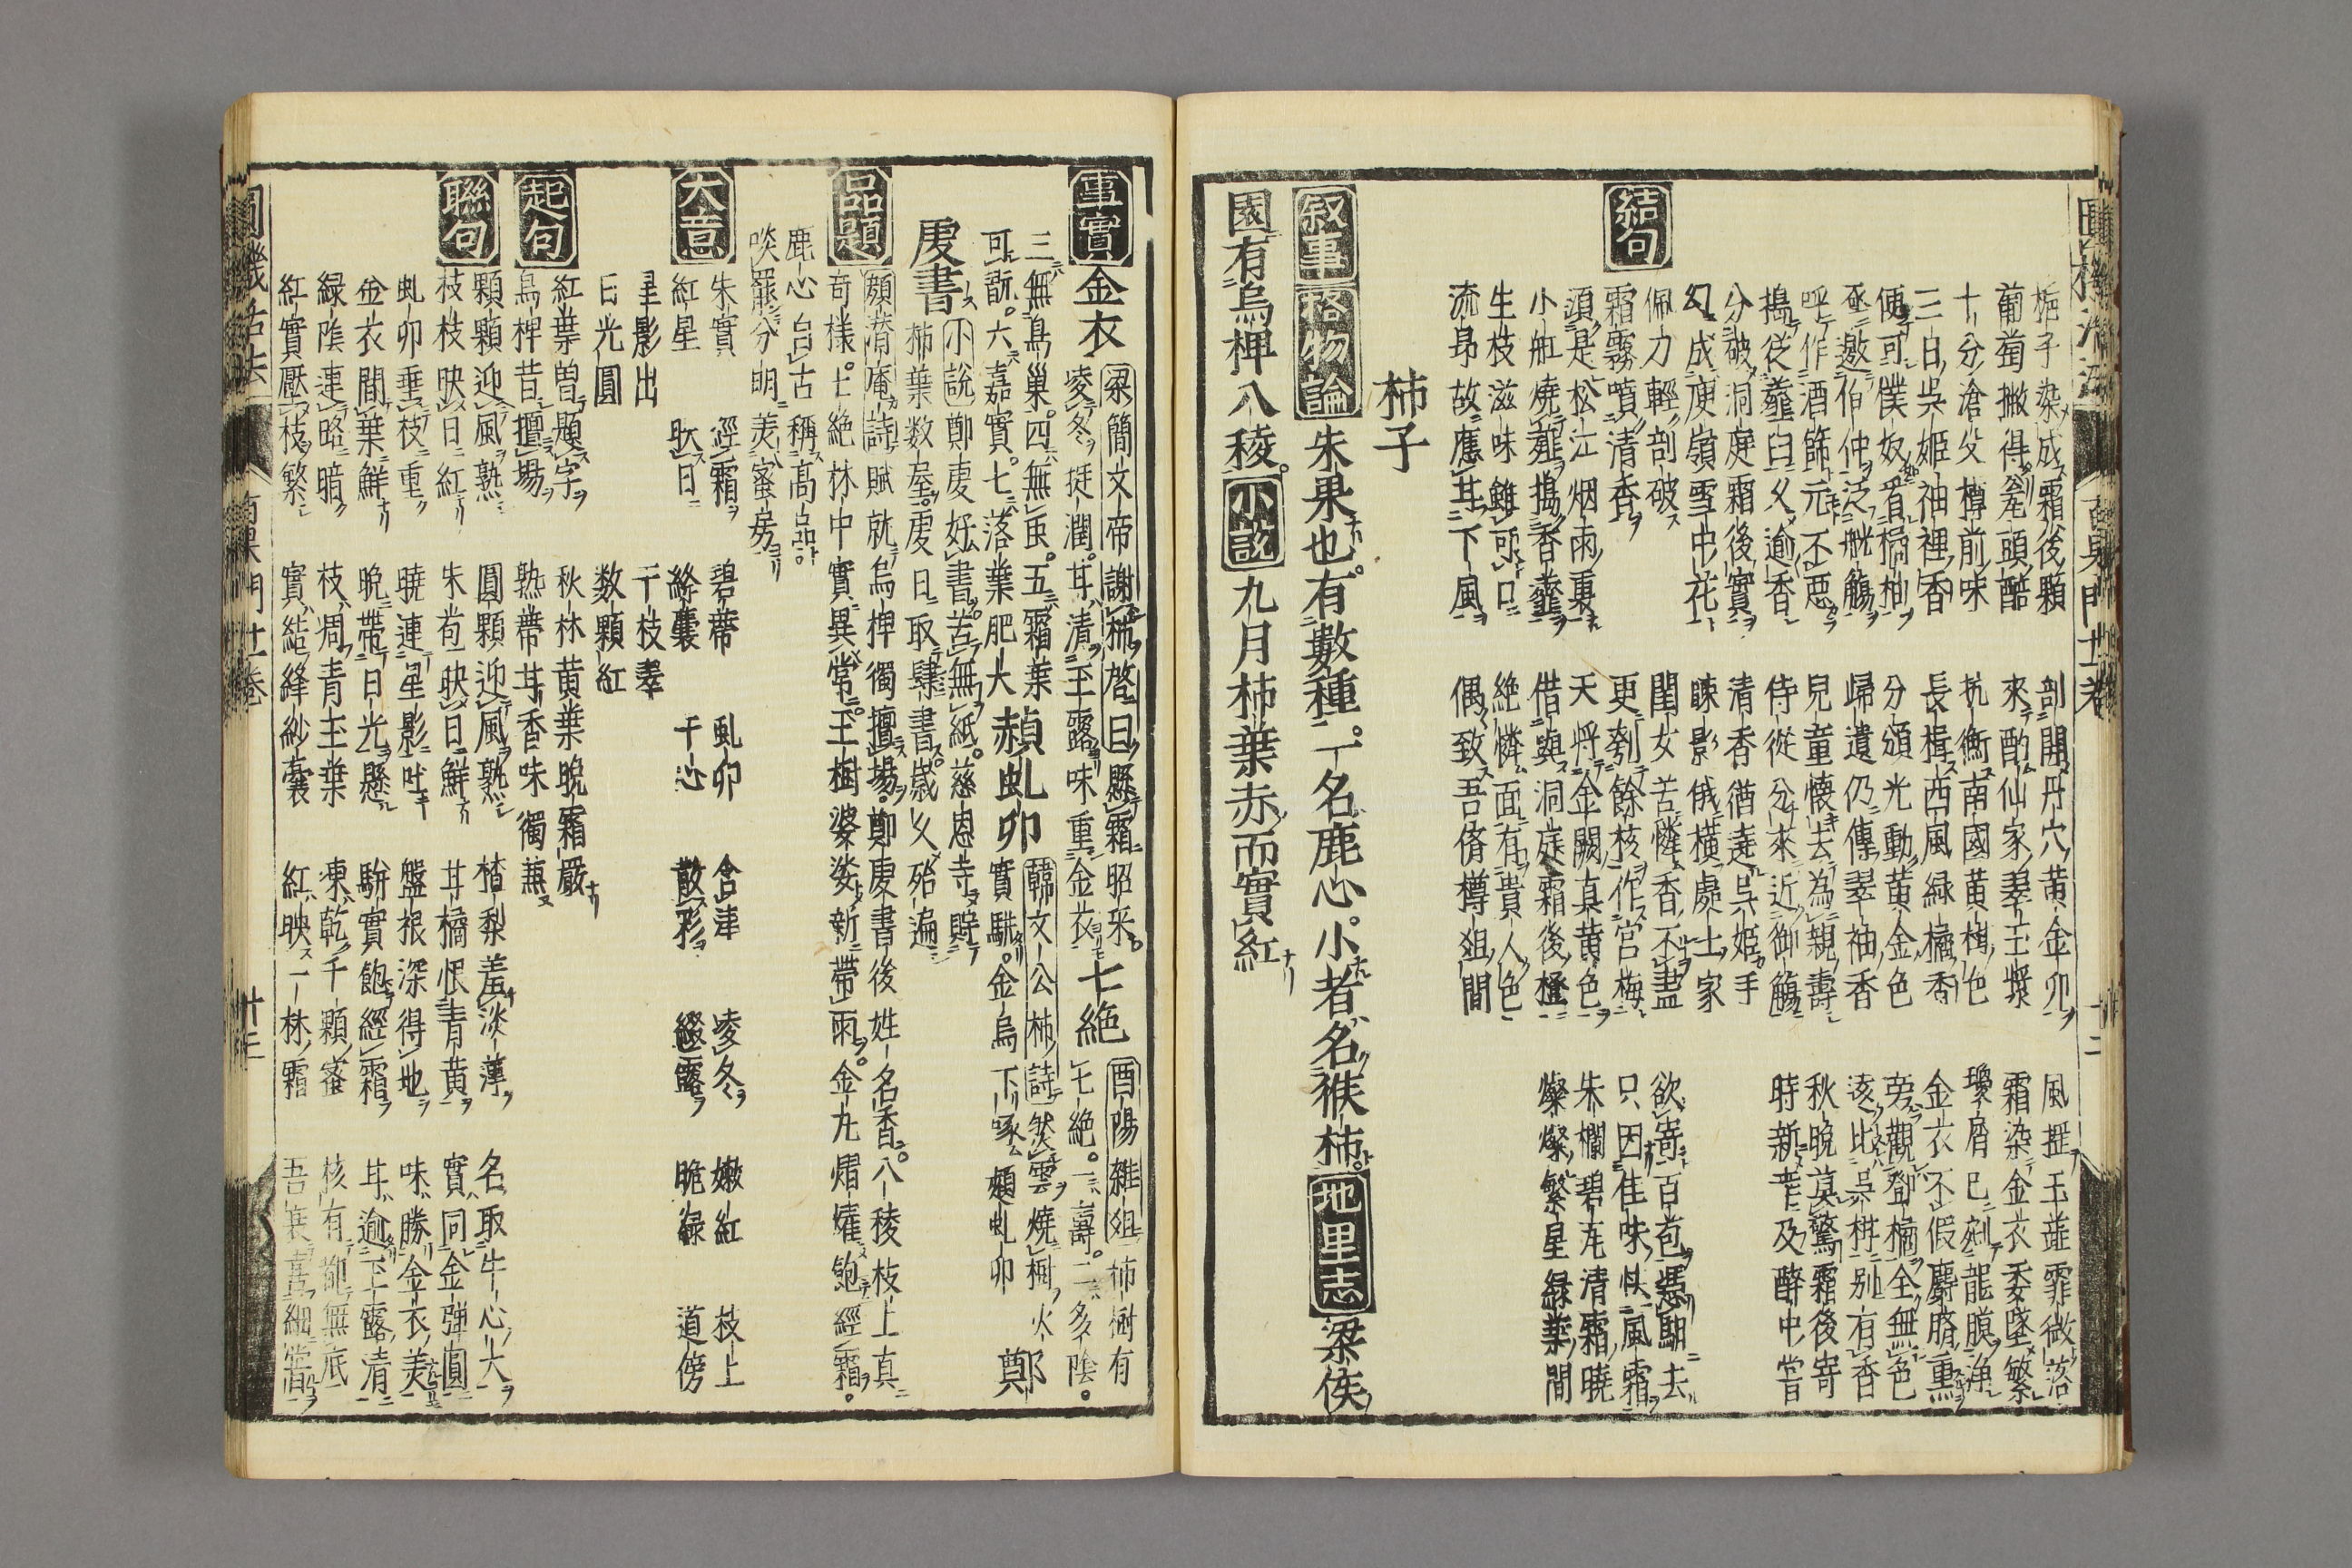 梔子染成霜後顆 剖開丹穴黄金卵
葡萄撇得 頭醅 來酌仙家翠玉漿 霜染金衣委墜繁
十分滄父樽前味 抗衡南國黄柑色
三日呉姬袖裡香 長楫西風緑橘香 金衣不假麝臍熏
便可僕奴看橘柚 分頒光動黄金色 旁觀鄧橘全無色
亟邀伯仲泛觥觴 歸遺仍傳翠袖香
呼作酒篩元不惡 兒童懷去為親壽 秋晚莫驚霜後寄
搗從虀臼久逾香 侍從分來近御觴 時新幸及醉中嘗
分破洞庭霜後實 清香猶遶呉姬手
幻成庾嶺雪中花 踈影俄横處士家
佩刀輕剖破 閨女苦憐香不盡 欲寄百苞憑馹去
霜霧噴清香 更剜餘核作宮梅 只因佳味怯風霜
須是松江烟雨裏 天將金闕真黄色 朱欄碧 清霜曉
小舡燒 搗香虀 借與洞庭霜後橙 燦燦繁星緑葉間
生枝滋味雖可口 絶憐面有貴人色
流昻故應其下風 偶致吾儕樽俎間
結句
柿子
叙事 格物論 朱果也有數種一名鹿心小者名猴柿 地里志 梁侯
園有烏椑八稜 小説 九月柿葉赤而實紅
事實 金衣 梁簡文帝謝柿啓曰懸霜昭采
凌冬挺潤甘清玉露味重金衣 七絶 酉陽雜俎 柿樹有
七絶一壽二多陰
三無鳥巢四無虫五霜葉
可翫六嘉實七落葉肥大 赬虬卵 韓文公柿詩 然雲燒樹火
實駢金烏下啄赬虬卵 鄭
虔書 小説 鄭虔好書苦無紙慈恩寺貯
柿葉数屋虔日取肄書歳久殆遍
品題 頤潜庵詩 賦就烏椑獨擅場鄭虔書後姓名香八稜枝上真
奇様七絶林中實異常玉樹婆娑新帶雨金丸熠燿飽經霜
鹿心自古稱高品
啖罷分明美蜜房
大意 朱實 經霜 碧蒂 虬卵 含津 凌冬 嫩紅 枝上
紅星 映日 絳囊 千心 散彩 綴露 脆緑 道傍
星影出 千枝翠
日光圓 数顆紅
起句 紅葉曽題字 秋林黄葉晩霜嚴
烏椑昔擅場 熟蒂甘香味獨兼
聯句 顆顆迎風熟 圓顆迎風熟 楂梨羞淡薄 名取牛心大
枝枝映日紅 朱苞映日鮮 甘橘恨青黄 實同金弾圓
虬卵垂枝重 暁連星影吐 盤根深得地 味勝金衣美
金衣間葉鮮 晩帶日光懸 駢實飽經霜 甘逾玉露清
緑陰連路暗 枝凋青玉葉 凍乾千顆蜜 核有都無底
紅實壓枝繁 實結絳紗囊 紅映一林霜
圓機活法 百果門廿一巻 十二
圓機活法 百果門廿一巻